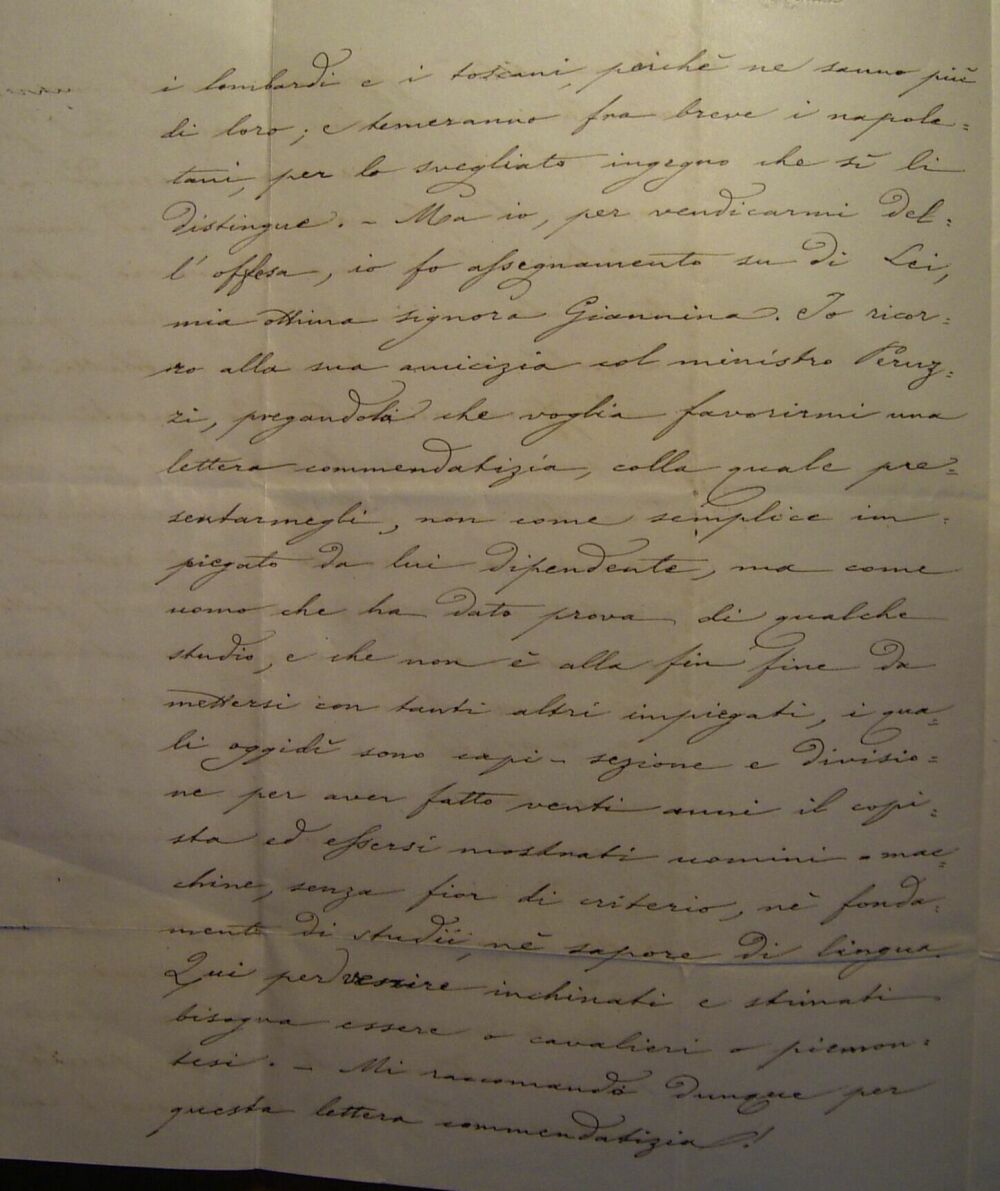 i lombardi e i toscani, perchè ne sanno più
di loro; e temeranno fra breve i napole=
tani, per lo svegliato ingegno che sì li
distingue. – Ma io, per vendicarmi del=
l'offesa, io fo assegnamento su di Lei,
mia ottima signora Giannina. Io ricor=
ro alla sua amicizia col ministro Peruz=
zi, pregandola che voglia favorirmi una
lettera commendatizia, colla quale pre=
sentarmegli, non come semplice im=
piegato da lui dipendente, ma come
uomo che ha dato prova di qualche
studio, e che non è alla fin fine da
mettersi con tanti altri impiegati, i qua=
li oggidì sono capi-sezione e divisio=
ne per aver fatto venti anni il copi=
sta ed essersi mostrati uomini-mac=
chine, senza fior di criterio, nè fonda=
mento di studii, nè sapore di lingua.
Qui per venire inchinati e stimati
bisogna essere o cavalieri o piemon=
tesi. – Mi raccomando dunque per
questa lettera commendatizia!